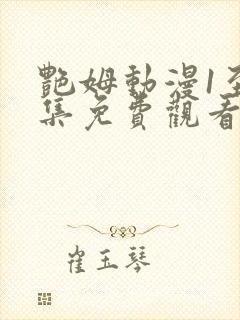 艷姆動漫1至
集免費觀看
崔玉琴